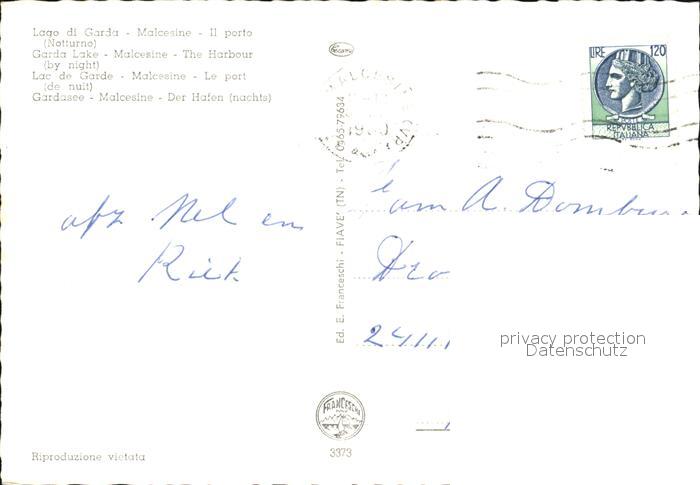 Lago di Garda - Malcesine - Il porto
(Notturno)
Garda Lake - Malcesine - The Harbour
(by night)
Lac de Garde - Malcesine - Le port
(de nuit)
Gardasee - Malcesine - Der Hafen (nachts)
LIRE 120
REPVBBLICA
ITALIANA
afz Nel en
Riek
Fam A. Dombu
privacy protection
Datenschutz
Ed. E. Franceschi - FIAVE' (TN) - Tel. 0465-79634
FRANCESCHI
3373
Riproduzione vietata